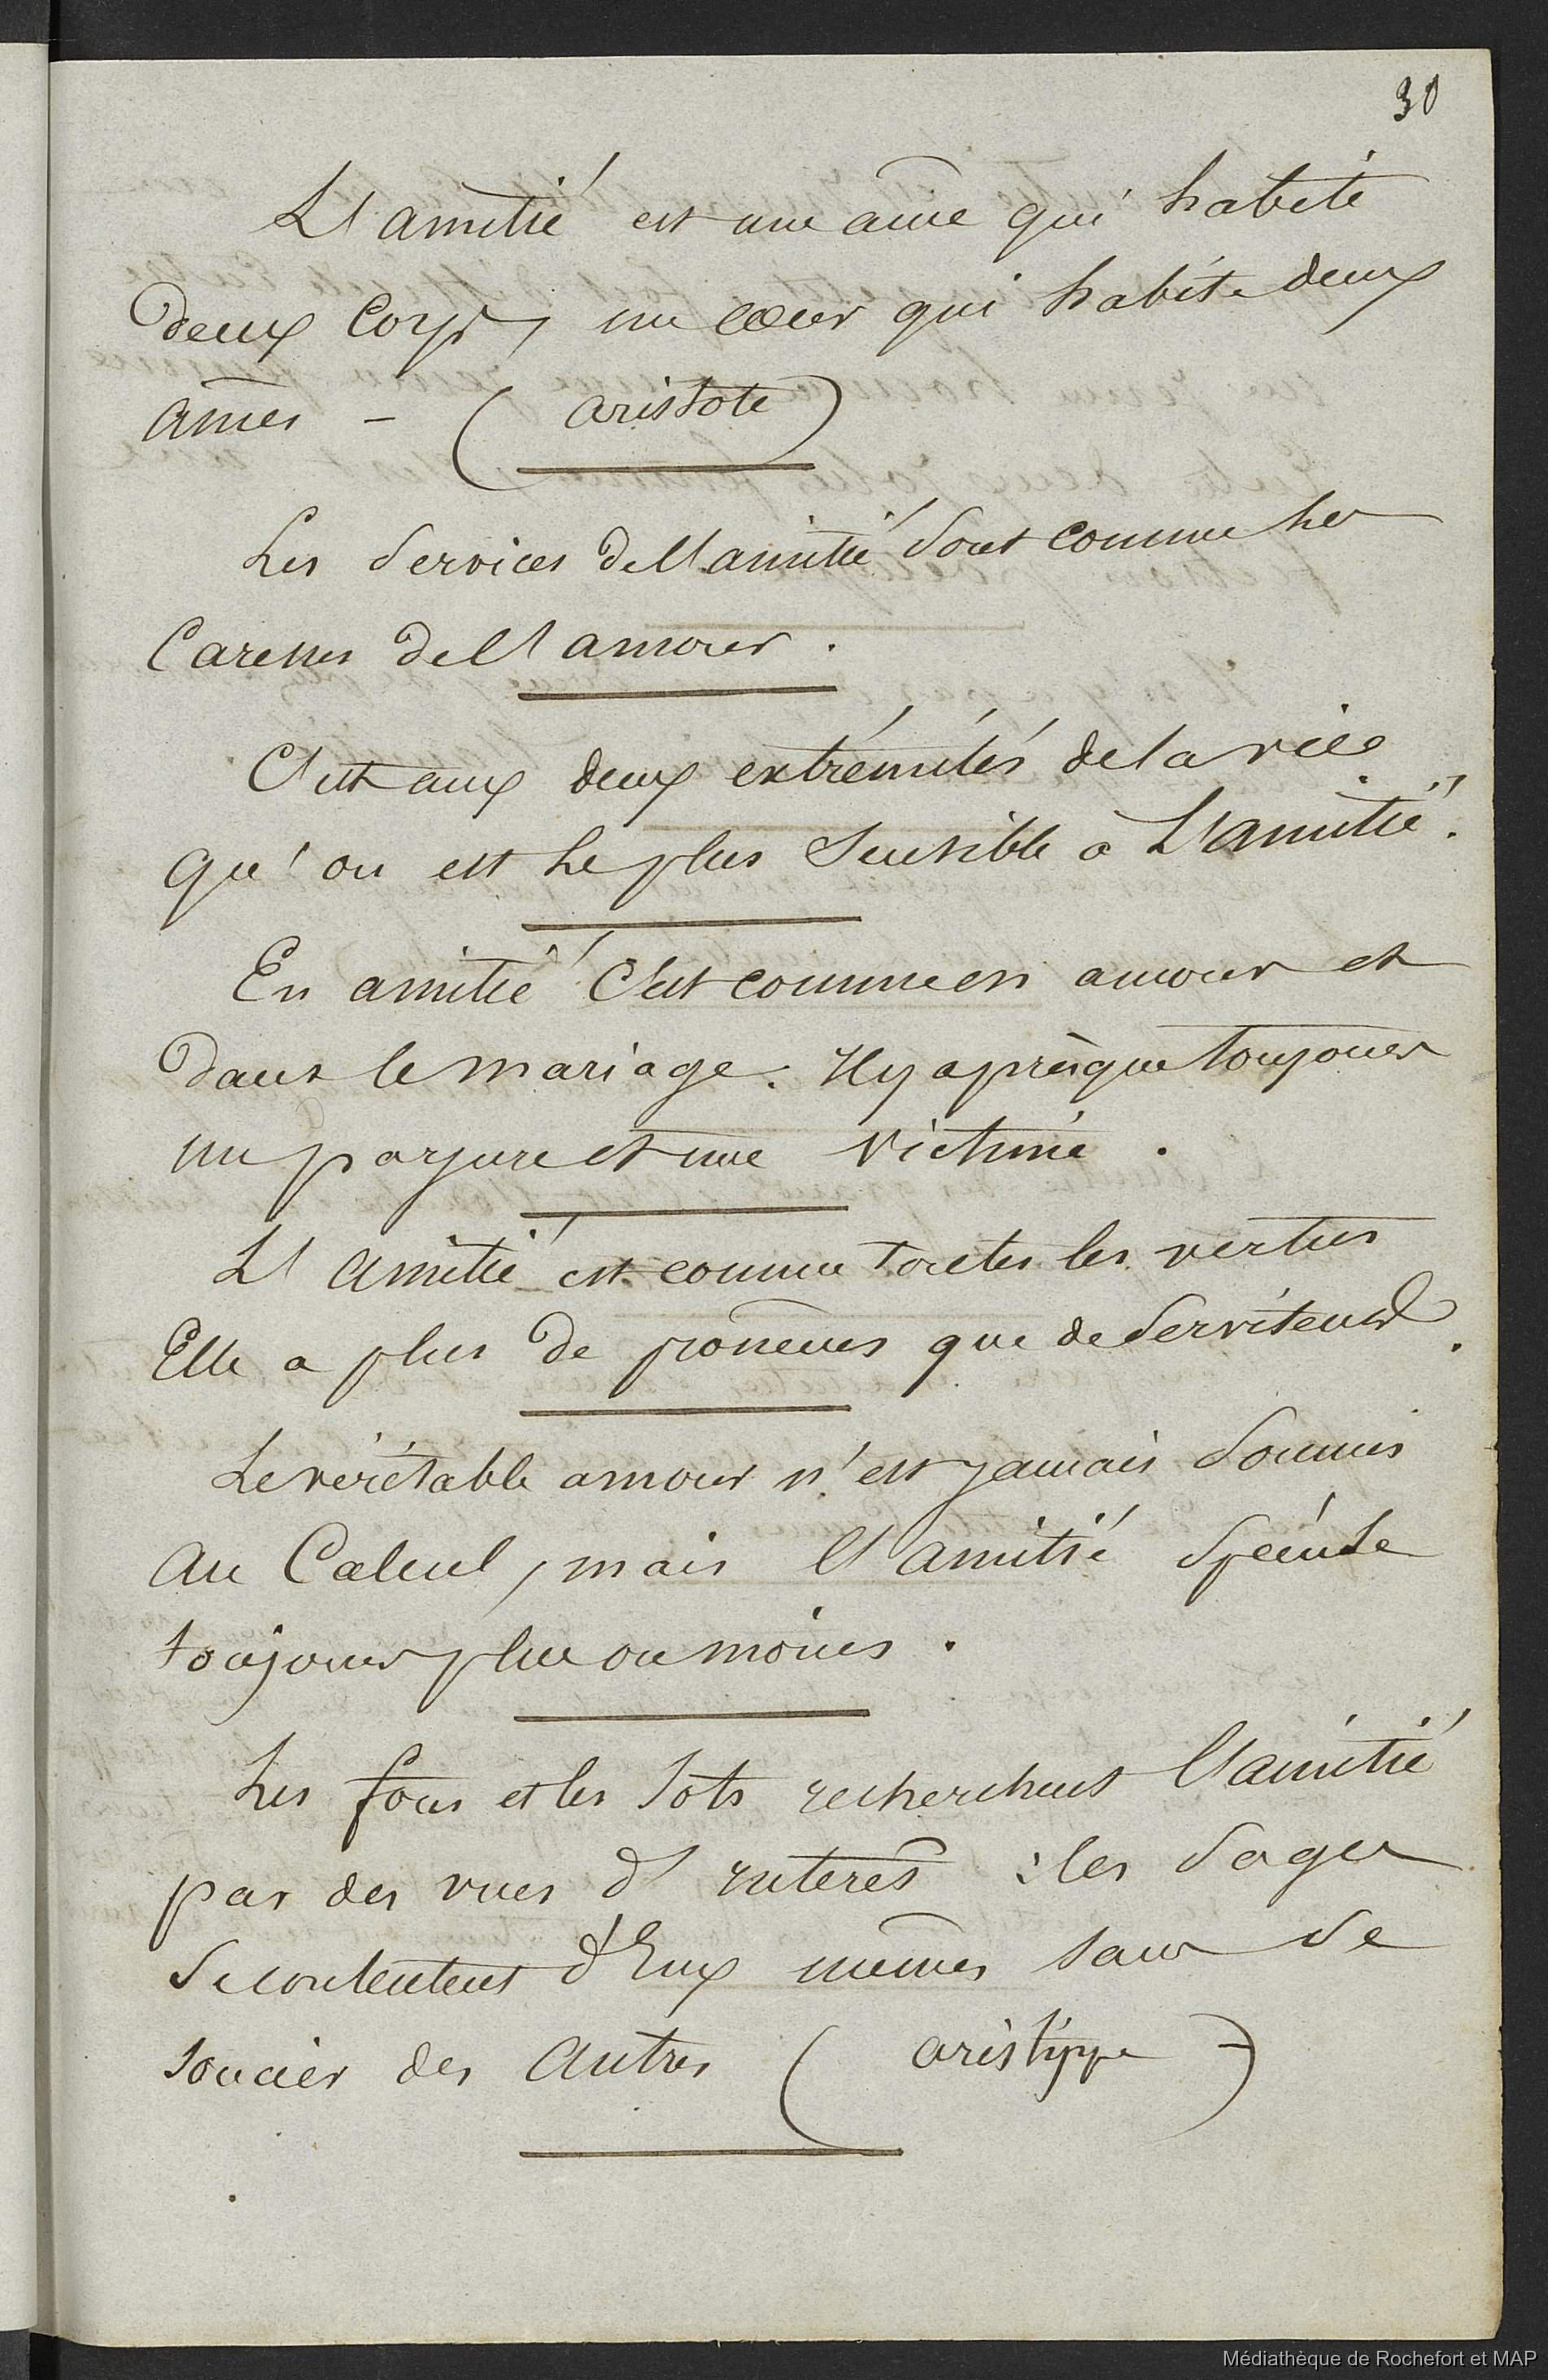 30
L'amitié est une ame qui habite
deux Corps, un cœur qui habite deux
âmes - (aristote)
Les Services de l'amitié sont comme les
Caresses de l'amour.
C'est aux deux extrémités de la vie
qu'on est le plus Sensible à L'amitié.
En amitié C'est comme en amour et
dans le mariage. Il y a prèsque toujours
un parjure et une Victime.
L'Amitié est comme toutes les vertus
Elle a plus de proneurs que de Serviteurs.
Le véritable amour n'est jamais Soumis
au Calcul, mais l'amitié Spécule
toujours plus ou moins.
Les fous et les Sots recherchent l'amitié
par des vues d'interês : les Sages
Se contentent d'Eux mêmes sans se
soucier des Autres (aristippe)
Médiathèque de Rochefort et MAP